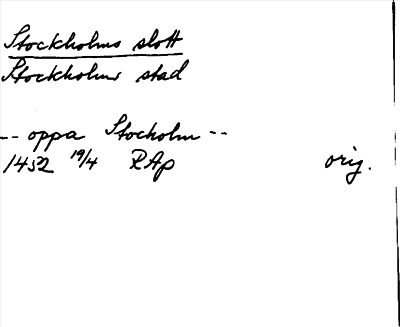 Stockholms slott
Stockholms stad
-- oppa Stocholm --
1452 19/4 RAp orig.